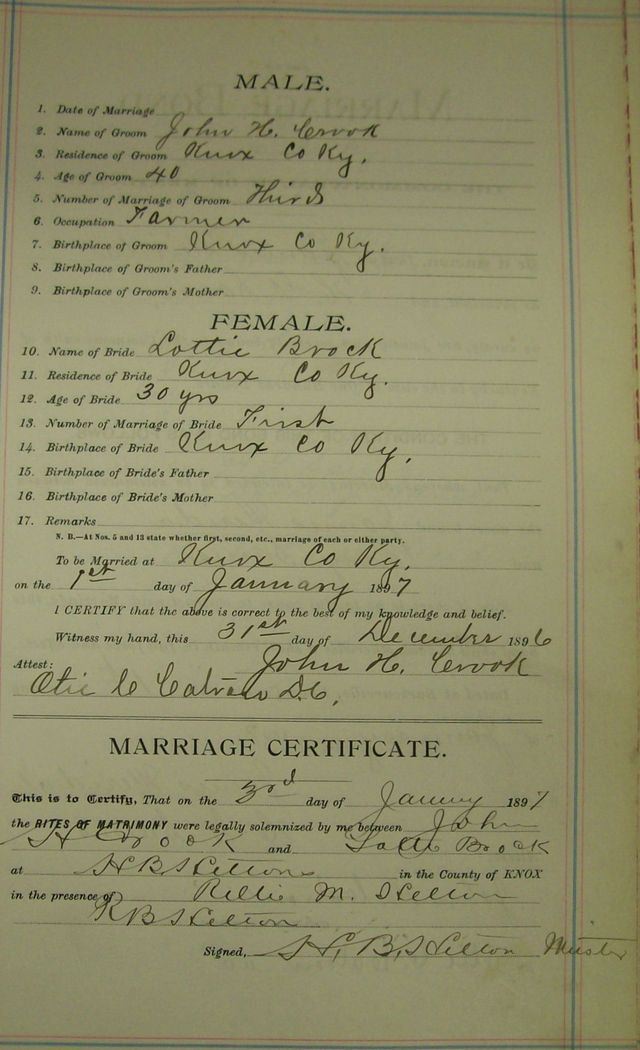 MALE.
1. Date of Marriage
2. Name of Groom John H. Crook
3. Residence of Groom Knox Co Ky.
4. Age of Groom 40
5. Number of Marriage of Groom Third
6. Occupation Farmer
7. Birthplace of Groom Knox Co Ky.
8. Birthplace of Groom's Father
9. Birthplace of Groom's Mother
FEMALE.
10. Name of Bride Lottie Brock
11. Residence of Bride Knox Co Ky.
12. Age of Bride 30 yrs
13. Number of Marriage of Bride First
14. Birthplace of Bride Knox Co Ky.
15. Birthplace of Bride's Father
16. Birthplace of Bride's Mother
17. Remarks
N. B.—At Nos. 5 and 13 state whether first, second, etc., marriage of each or either party.
To be Married at Knox Co Ky.
on the 1st day of January 1897
I CERTIFY that the above is correct to the best of my knowledge and belief.
Witness my hand, this 31st day of December 1896
John H. Crook
Attest:
Otic C D.C.
MARRIAGE CERTIFICATE.
This is to Certify, That on the 3rd day of January 1897
the RITES OF MATRIMONY were legally solemnized by me between John
H Crook and Lottie Brock
at H B Skeltons in the County of KNOX
in the presence of Rillie M. Skelton
R B Skelton
Signed, H. B. Skelton